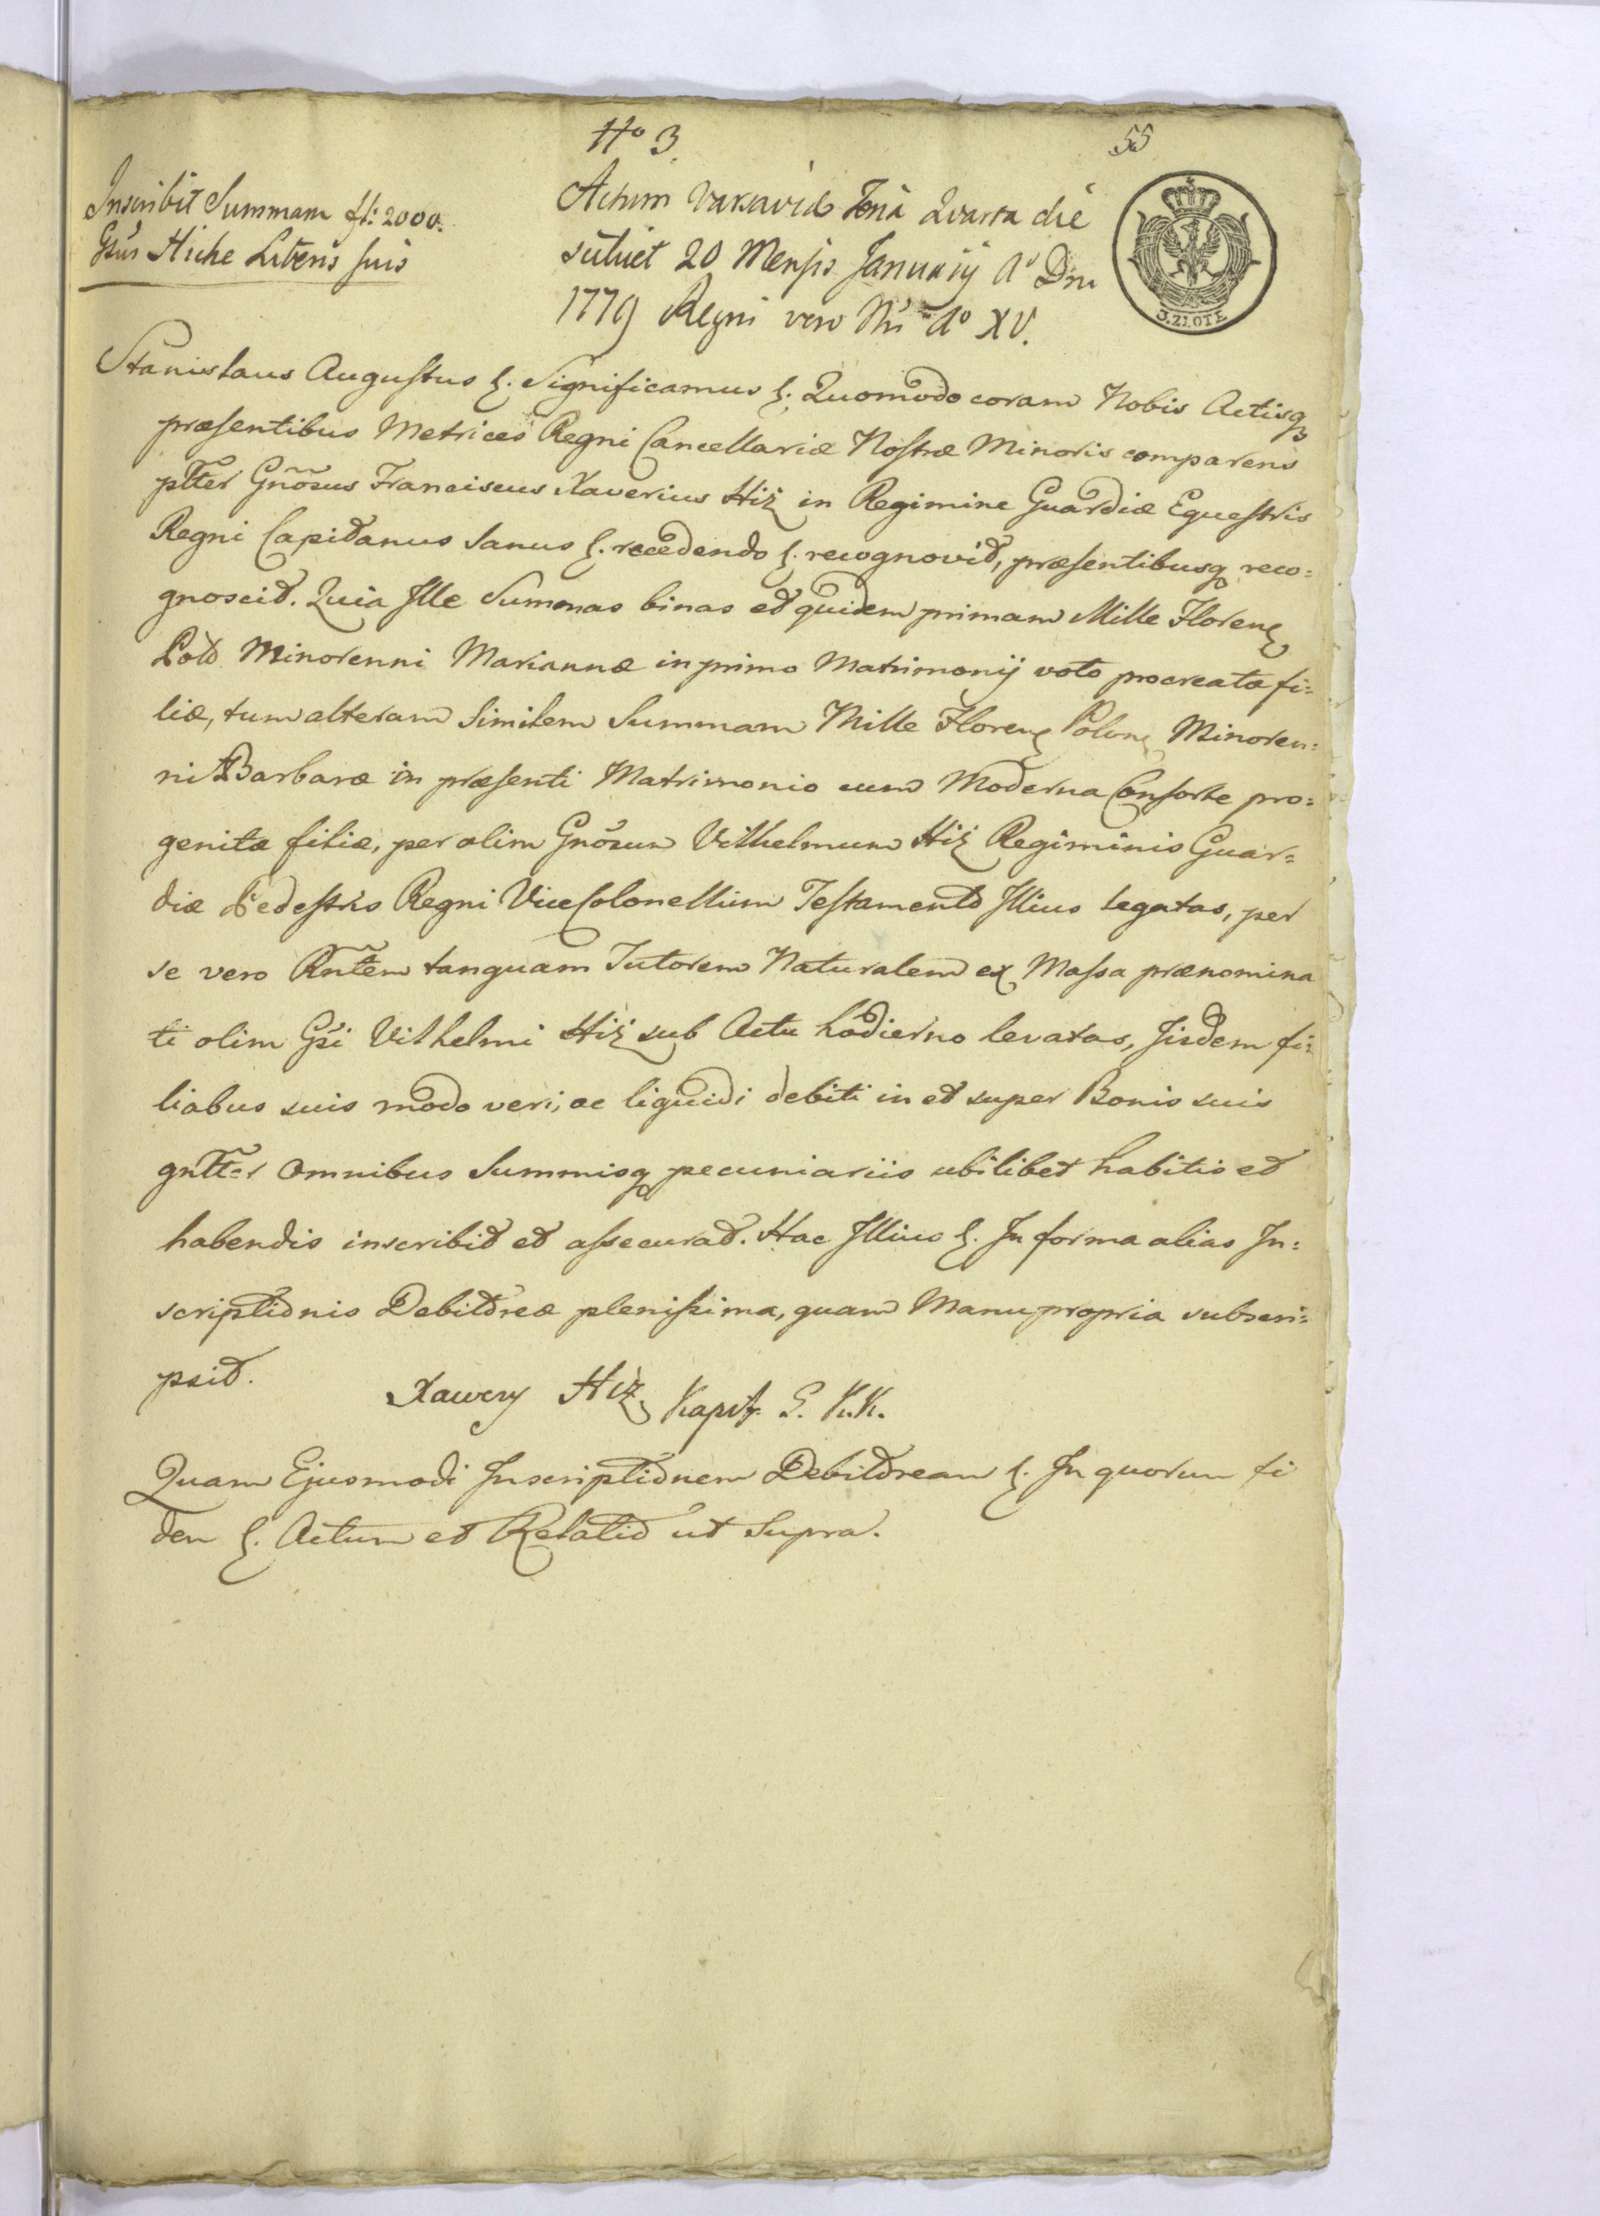 No 3
55
Inscribit Summam fl: 2000.
Gsus Hiche Liberis suis
Actum Varsaviæ Feria Quarta die
scilicet 20 Mensis Januarij Ao Dni
1779 Regni vero Nri Ao XV.
3. ZŁOTE
Stanislaus Augustus &. Significamus &. Quomodo coram Nobis Actisq
præsentibus Metrices Regni Cancellariæ Nostræ Minoris comparens
pltter Gnosus Franciscus Xaverius Hiż in Regimine Guardiæ Equestris
Regni Capitanus Sanus &. recedendo &. recognovit, præsentibusq reco=
gnoscit. Quia Ille Summas binas et quidem primam Mille Floren
Pold Minorenni Mariannæ in primo Matrimonij voto procreata fi=
liæ, tum alteram Similem Summam Mille Floren Polon Minoren=
ni Barbaræ in præsenti Matrimonio cum Moderna Consorte pro=
genitæ filiæ, per olim Gnosum Vilhelmum Hiż Regiminis Guar=
diæ Pedestris Regni ViceColonellium Testamento Illius legatas, per
se vero Rntem tanquam Tutorem Naturalem ex Massa prænomina
ti olim Gsi Vilhelmi Hiż sub Actu hodierno levatas, Jisdem fi=
liabus suis modo veri, ac liquidi debiti in et super Bonis suis
gnltter Omnibus Summisq pecuniariis ubilibet habitis et
habendis inscribit et assecurat. Hac Illius &. In forma alias In=
scriptionis Debitoreæ plenissima, quam Manu propria subscri=
psit.
Xawery Hiż Kapit. G. K.K.
Quam Ejusmodi Inscriptionem Debitoream &. In quorum fi
dem &. Actum et Relatio ut Supra.